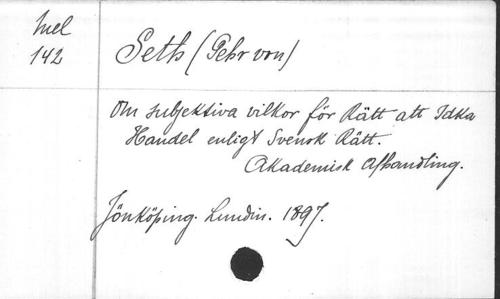 Mel
142
Seth (Pehr von)
Om subjektiva vilkor för Rätt att Idka
Handel enligt Svensk Rätt.
Akademisk Afhandling.
Jönköping. Lundin. 1897.